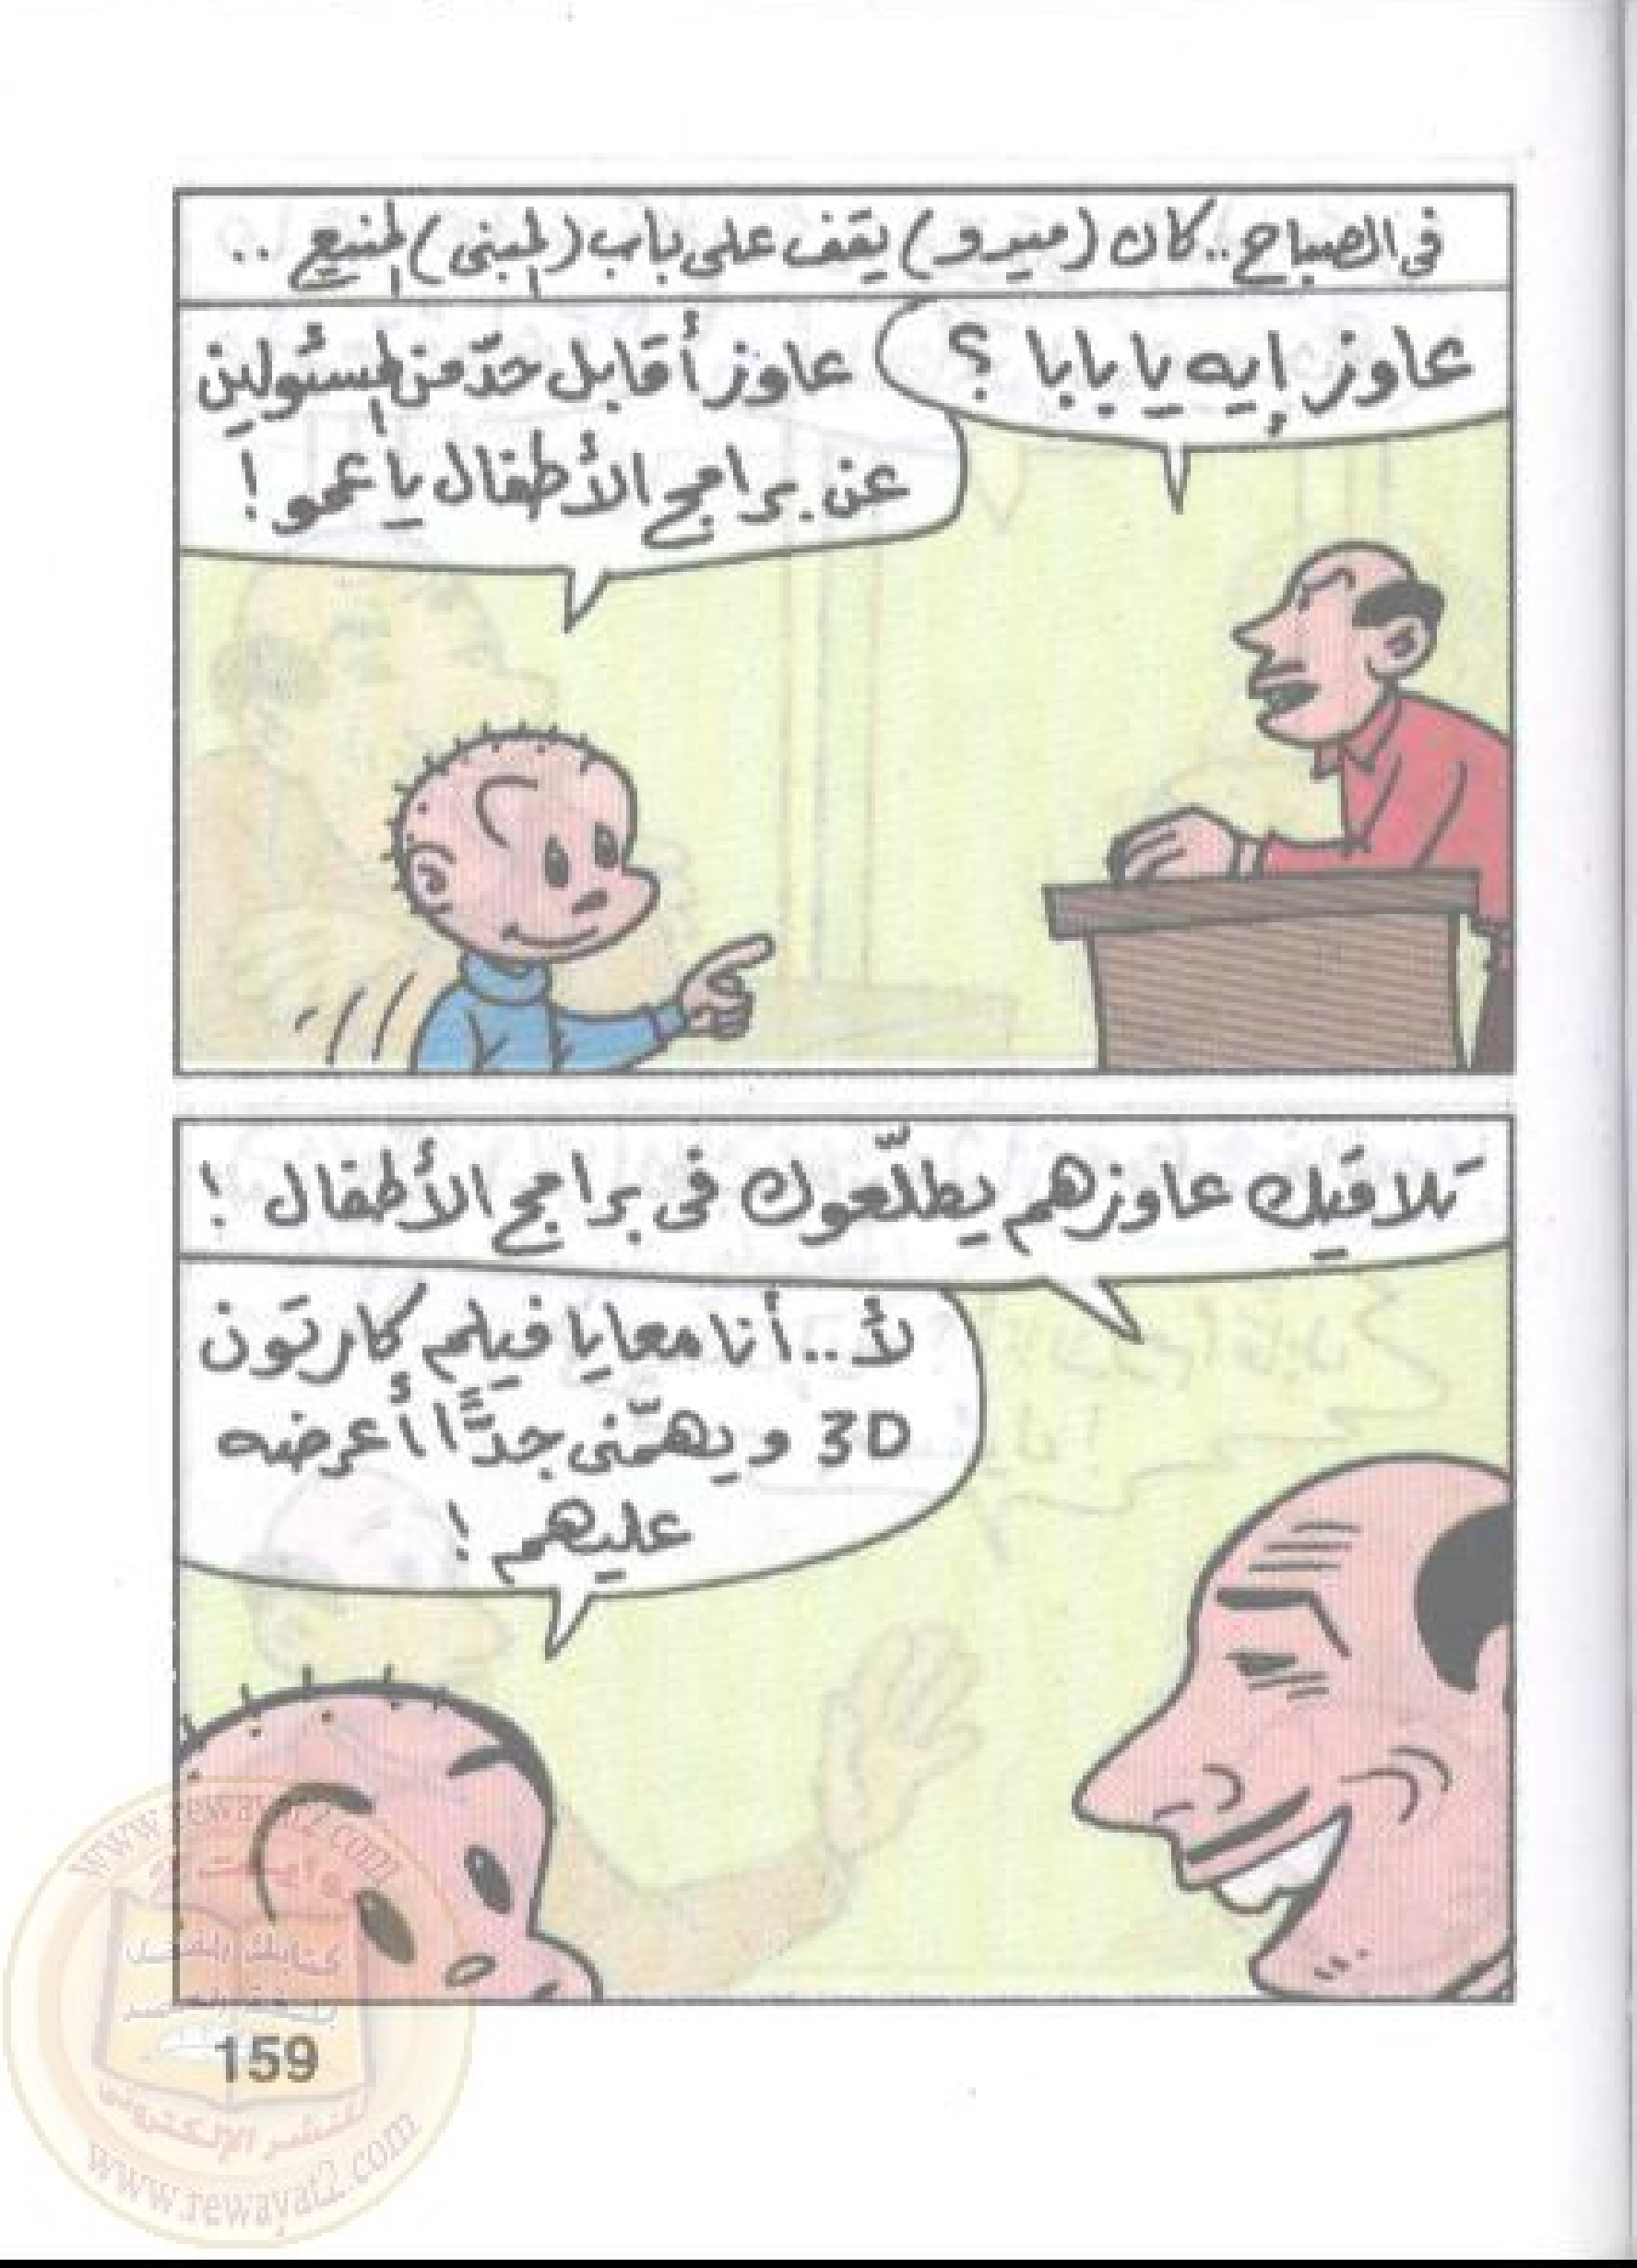 فى الصباح..كان (ميدو) يقف على باب (المبنى) المنيع ..
عاوز إيه يا بابا ؟
عاوز أقابل حدّ من المسئولين
عن برامج الأطفال يا عمو !
تلاقيك عاوزهم يطلّعوك فى برامج الأطفال !
لأ..أنا معايا فيلم كارتون
3D ويهمّنى جدًّا أعرضه
عليهم !
www.rewayat2.com
159
للنشر الإلكترونى
www.rewayat2.com